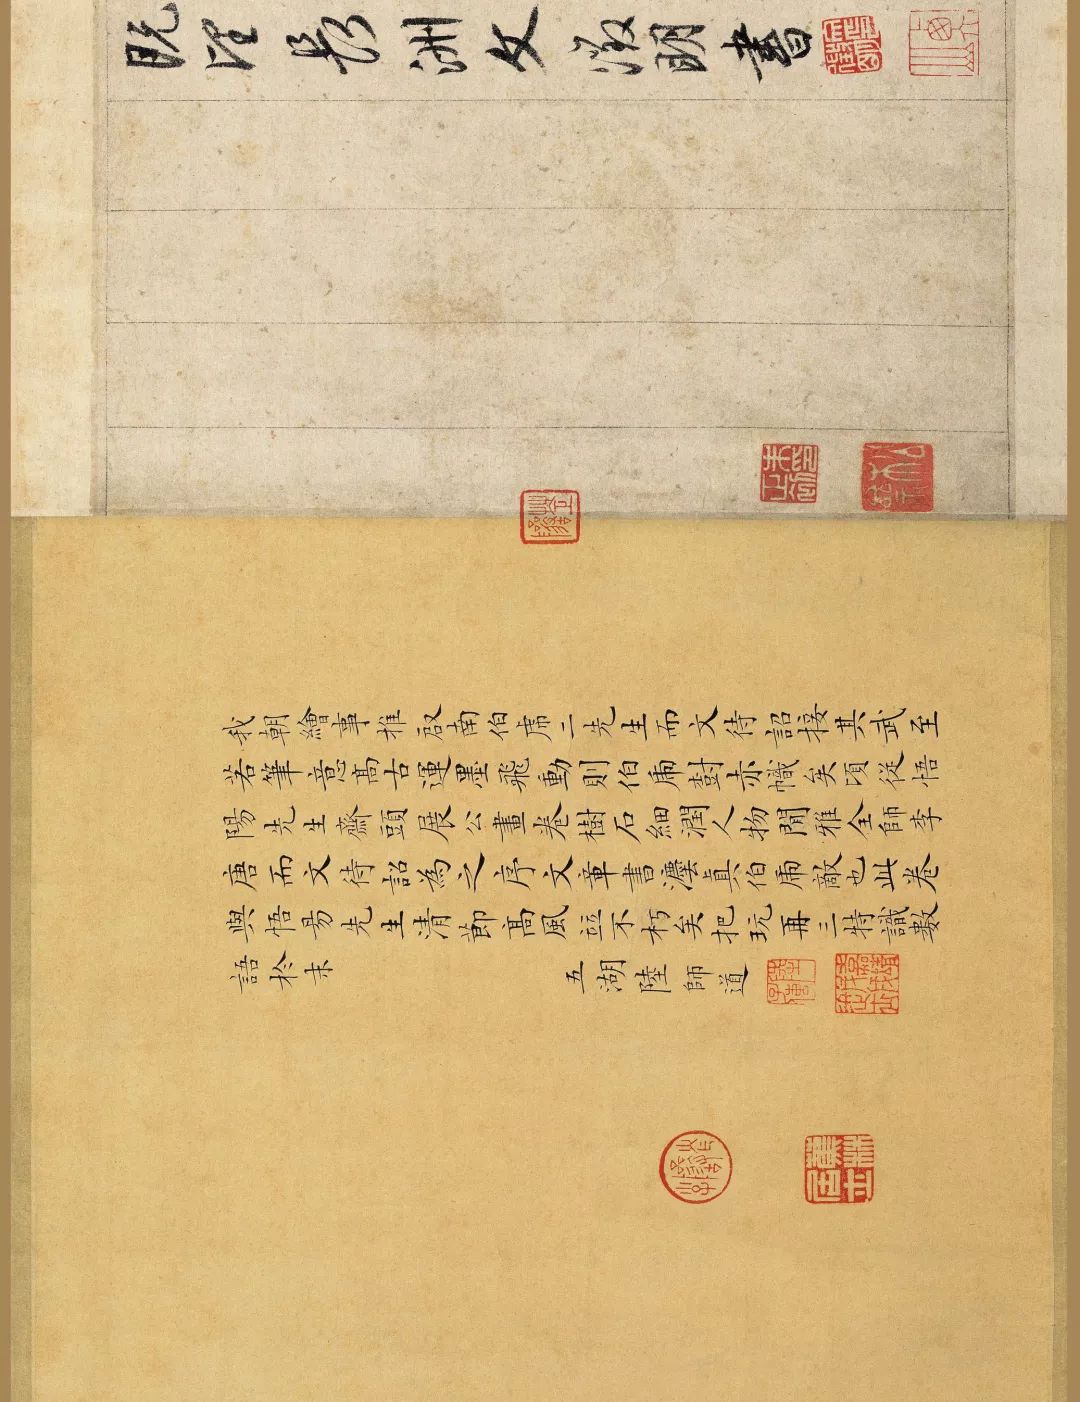 既望長洲文徵明書
我朝繪事推啟南伯虎二先生而文待詔接其武至
若筆意高古運墨飛動則伯虎樹赤幟矣頃從悟
陽先生齋頭展公畫卷樹石細潤人物閒雅全師李
唐而文待詔為之序文章書灋真伯虎敵也此卷
與悟昜先生清節高風並不朽矣把玩再三特識數
語於末
五湖陸師道